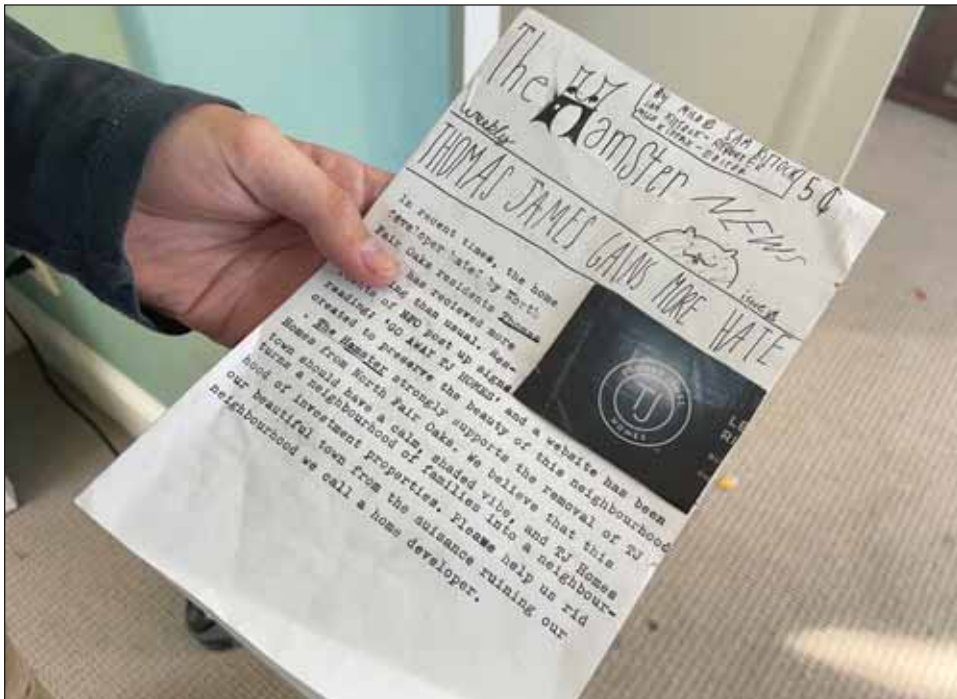 The Hamster NEWS
Weekly
BY MILO & SAM
REPORTER
EDITOR
5¢
issue
THOMAS JAMES GAINS MORE HATE
In recent times, the home
developer hated by North
Fair Oaks residents Thomas
James has recieved more
hating than usual. Res-
idents of NFO post up signs
reading: 'GO AWAY TJ HOMES' and a website has been
created to preserve the beauty of this neighbourhood
. The Hamster strongly supports the removal of TJ
Homes from North Fair Oaks. We believe that this
town should have a calm, shaded vibe, and TJ Homes
turns a neighbourhood of families into a neighbour-
hood of investment properties. Please help us rid
our beautiful town from the nuisance ruining our
neighbourhood we call a home developer.
TJ
HOMES